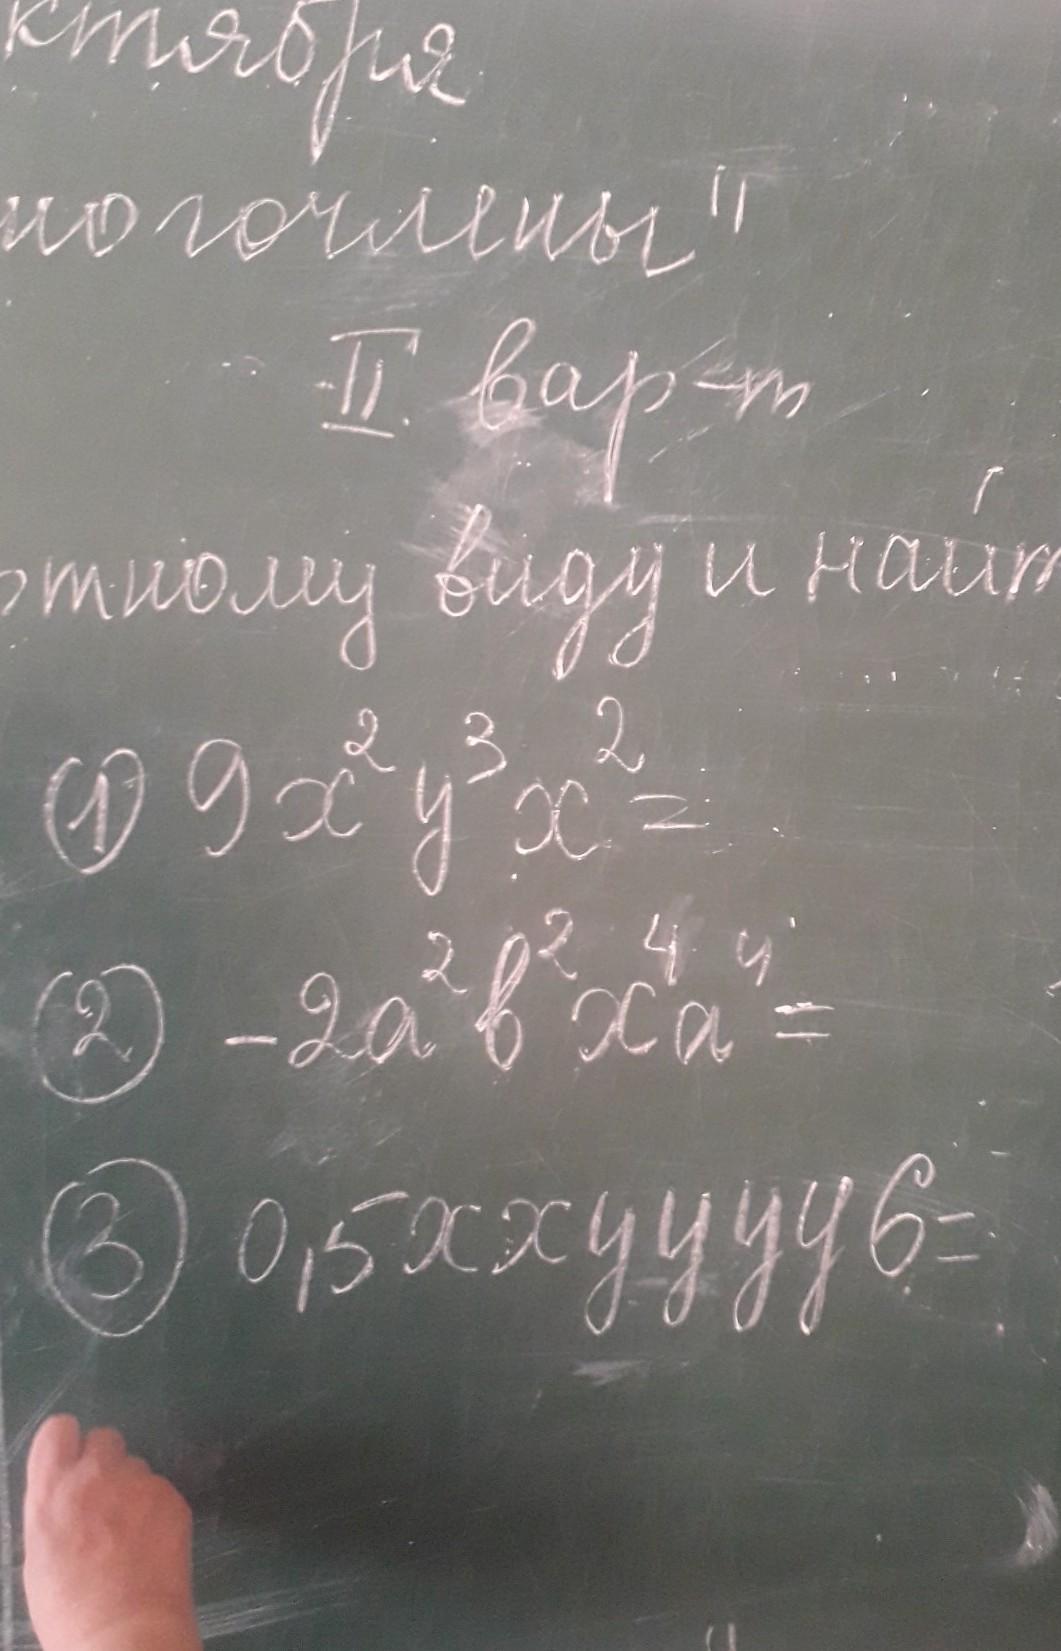 ктября
ногочлены"
II вар-т
ртному виду и найт
① 9x²y³x²=
② -2a²b²x⁴a⁴=
③ 0,5xxyyyy6=